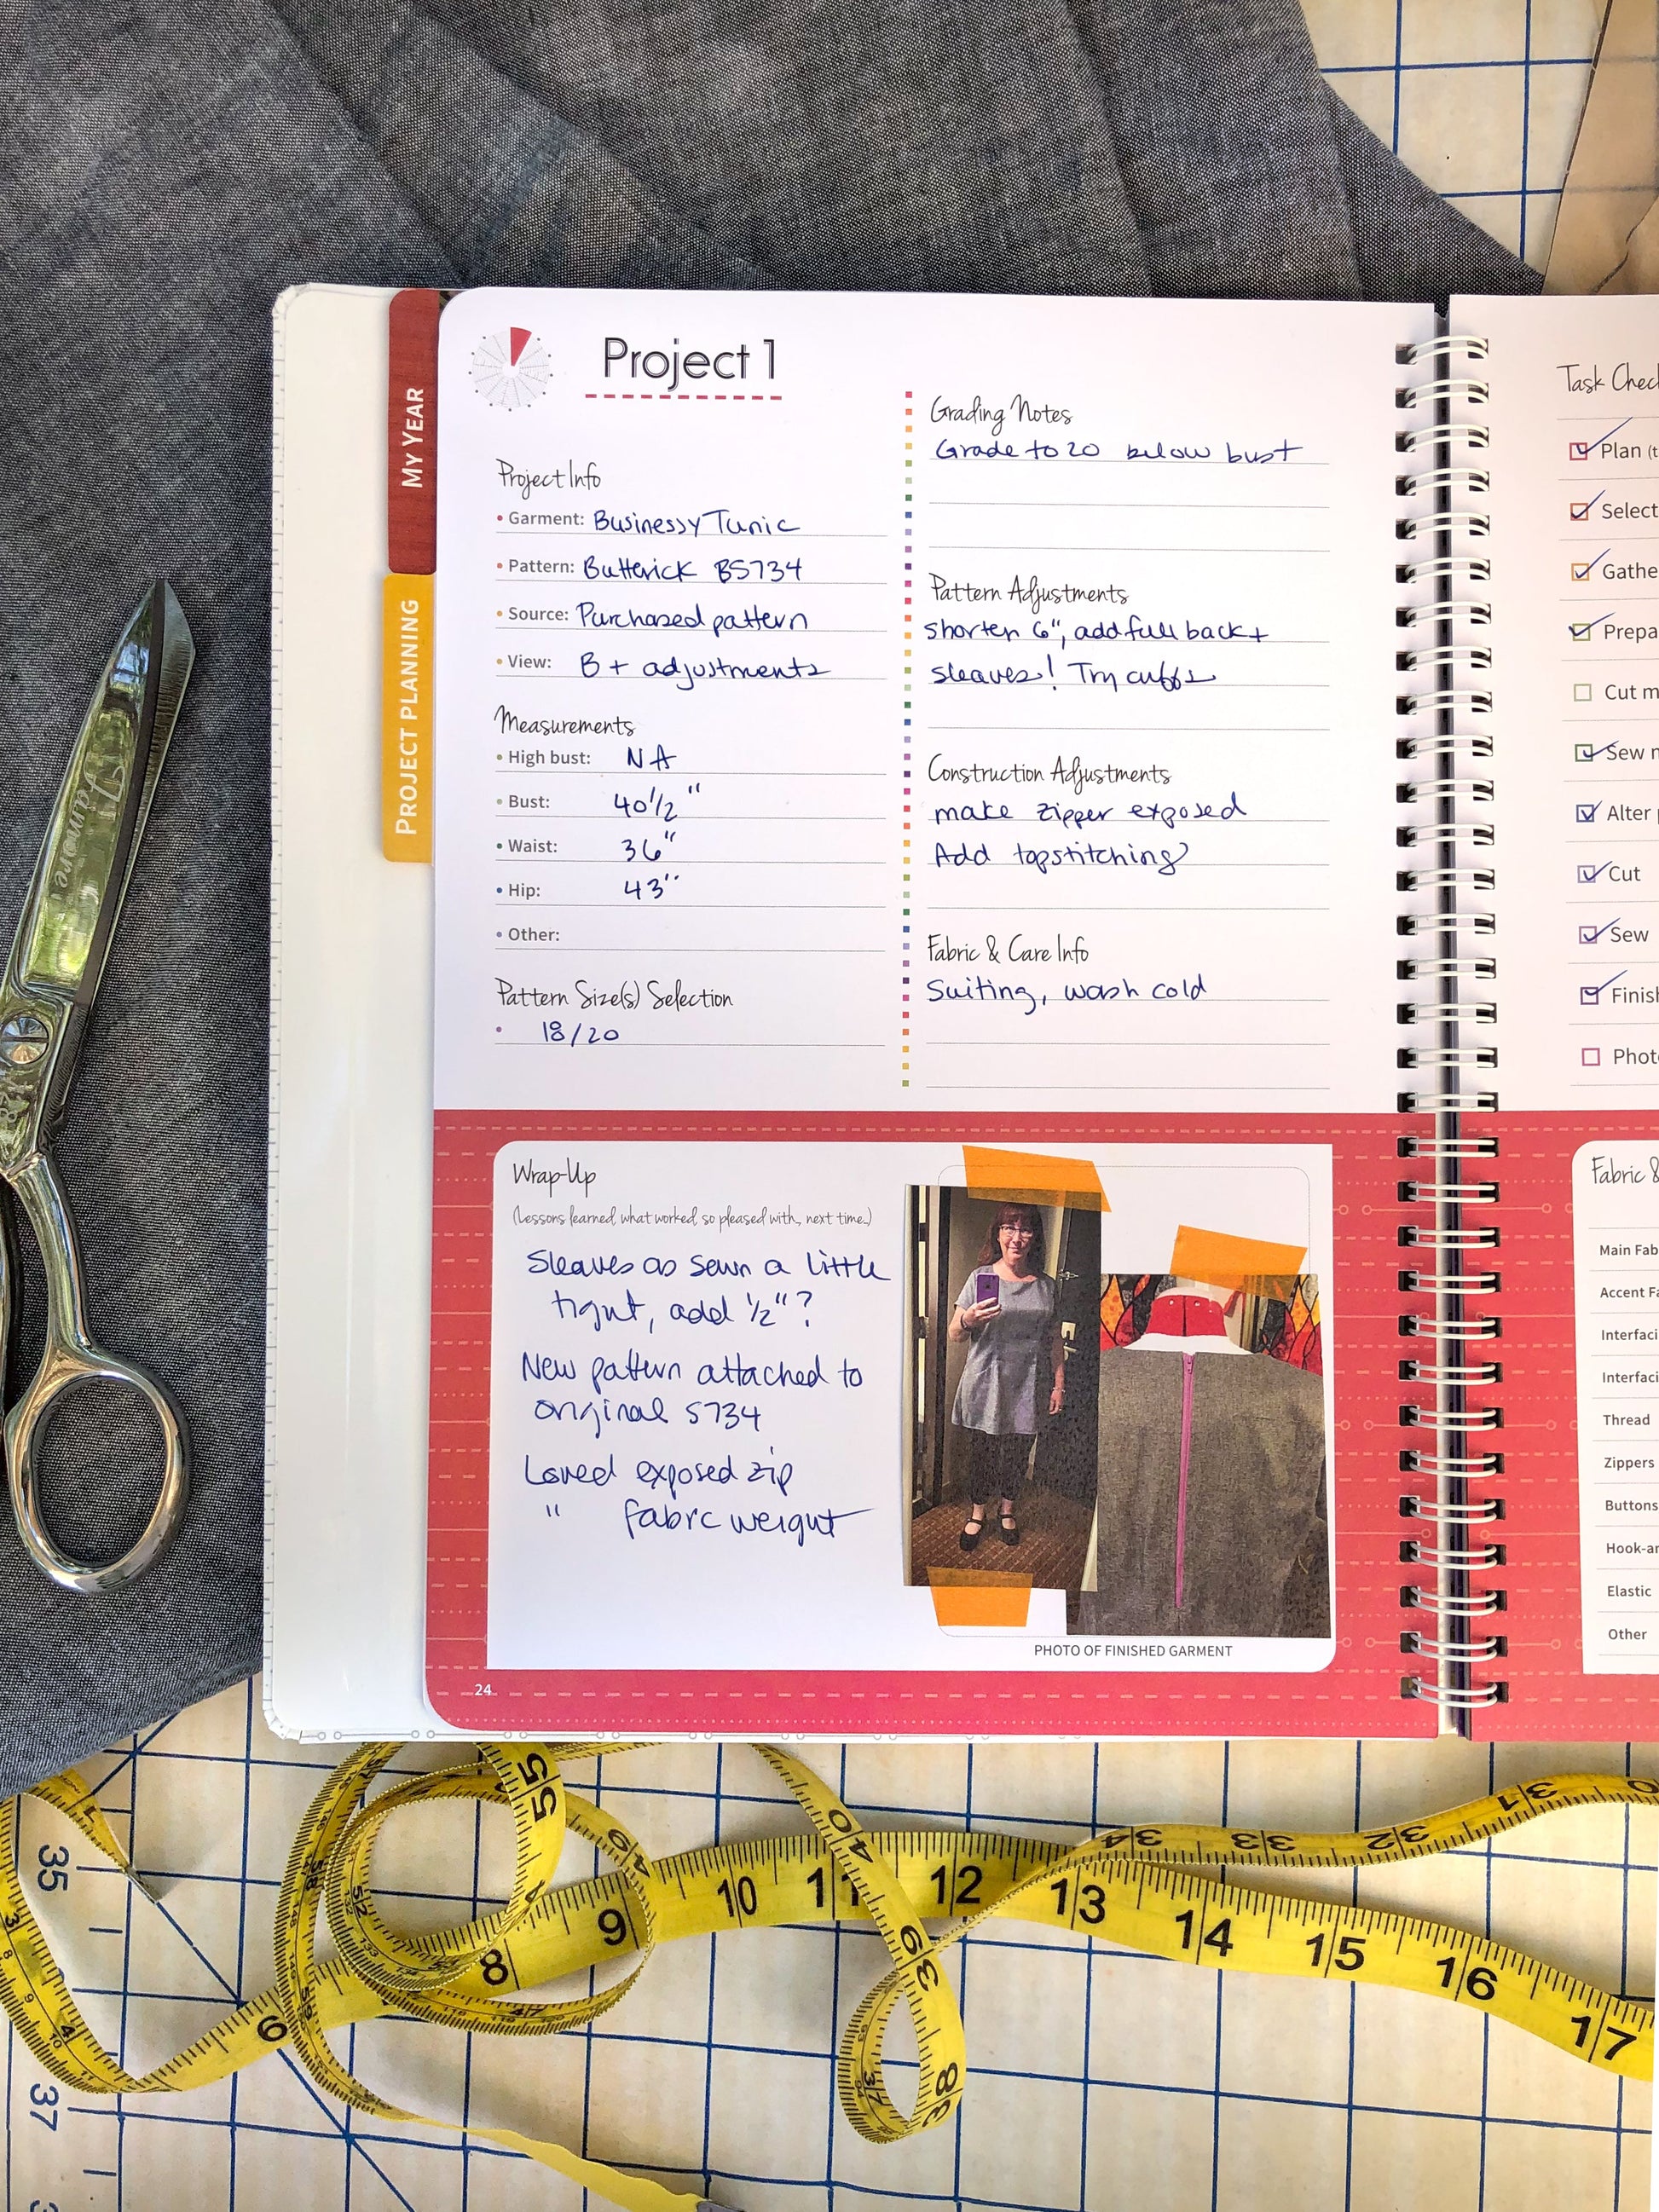 MY YEAR
PROJECT PLANNING
Project 1
Project Info
Garment: Businessy Tunic
Pattern: Butterick B5734
Source: Purchased pattern
View: B + adjustments
Measurements
High bust: NA
Bust: 40 1/2"
Waist: 36"
Hip: 43"
Other:
Pattern Size(s) Selection
18/20
Grading Notes
Grade to 20 below bust
Pattern Adjustments
shorten 6", add full back +
sleaves! Try cuffs
Construction Adjustments
make zipper exposed
Add topstitching
Fabric & Care Info
Suiting, wash cold
Wrap-Up
(Lessons learned, what worked, so pleased with, next time...)
Sleaves as sewn a little
tight, add 1/2"?
New pattern attached to
original 5734
Loved exposed zip
" fabrc weight
PHOTO OF FINISHED GARMENT
24
Task Chec
Plan (t
Select
Gathe
Prepa
Cut m
Sew m
Alter p
Cut
Sew
Finish
Photo
Fabric &
Main Fab
Accent Fa
Interfaci
Interfaci
Thread
Zippers
Buttons
Hook-an
Elastic
Other
55
49
40
39
38
37
34
33
32
31
6
8
9
10
11
12
13
14
15
16
17
35
37